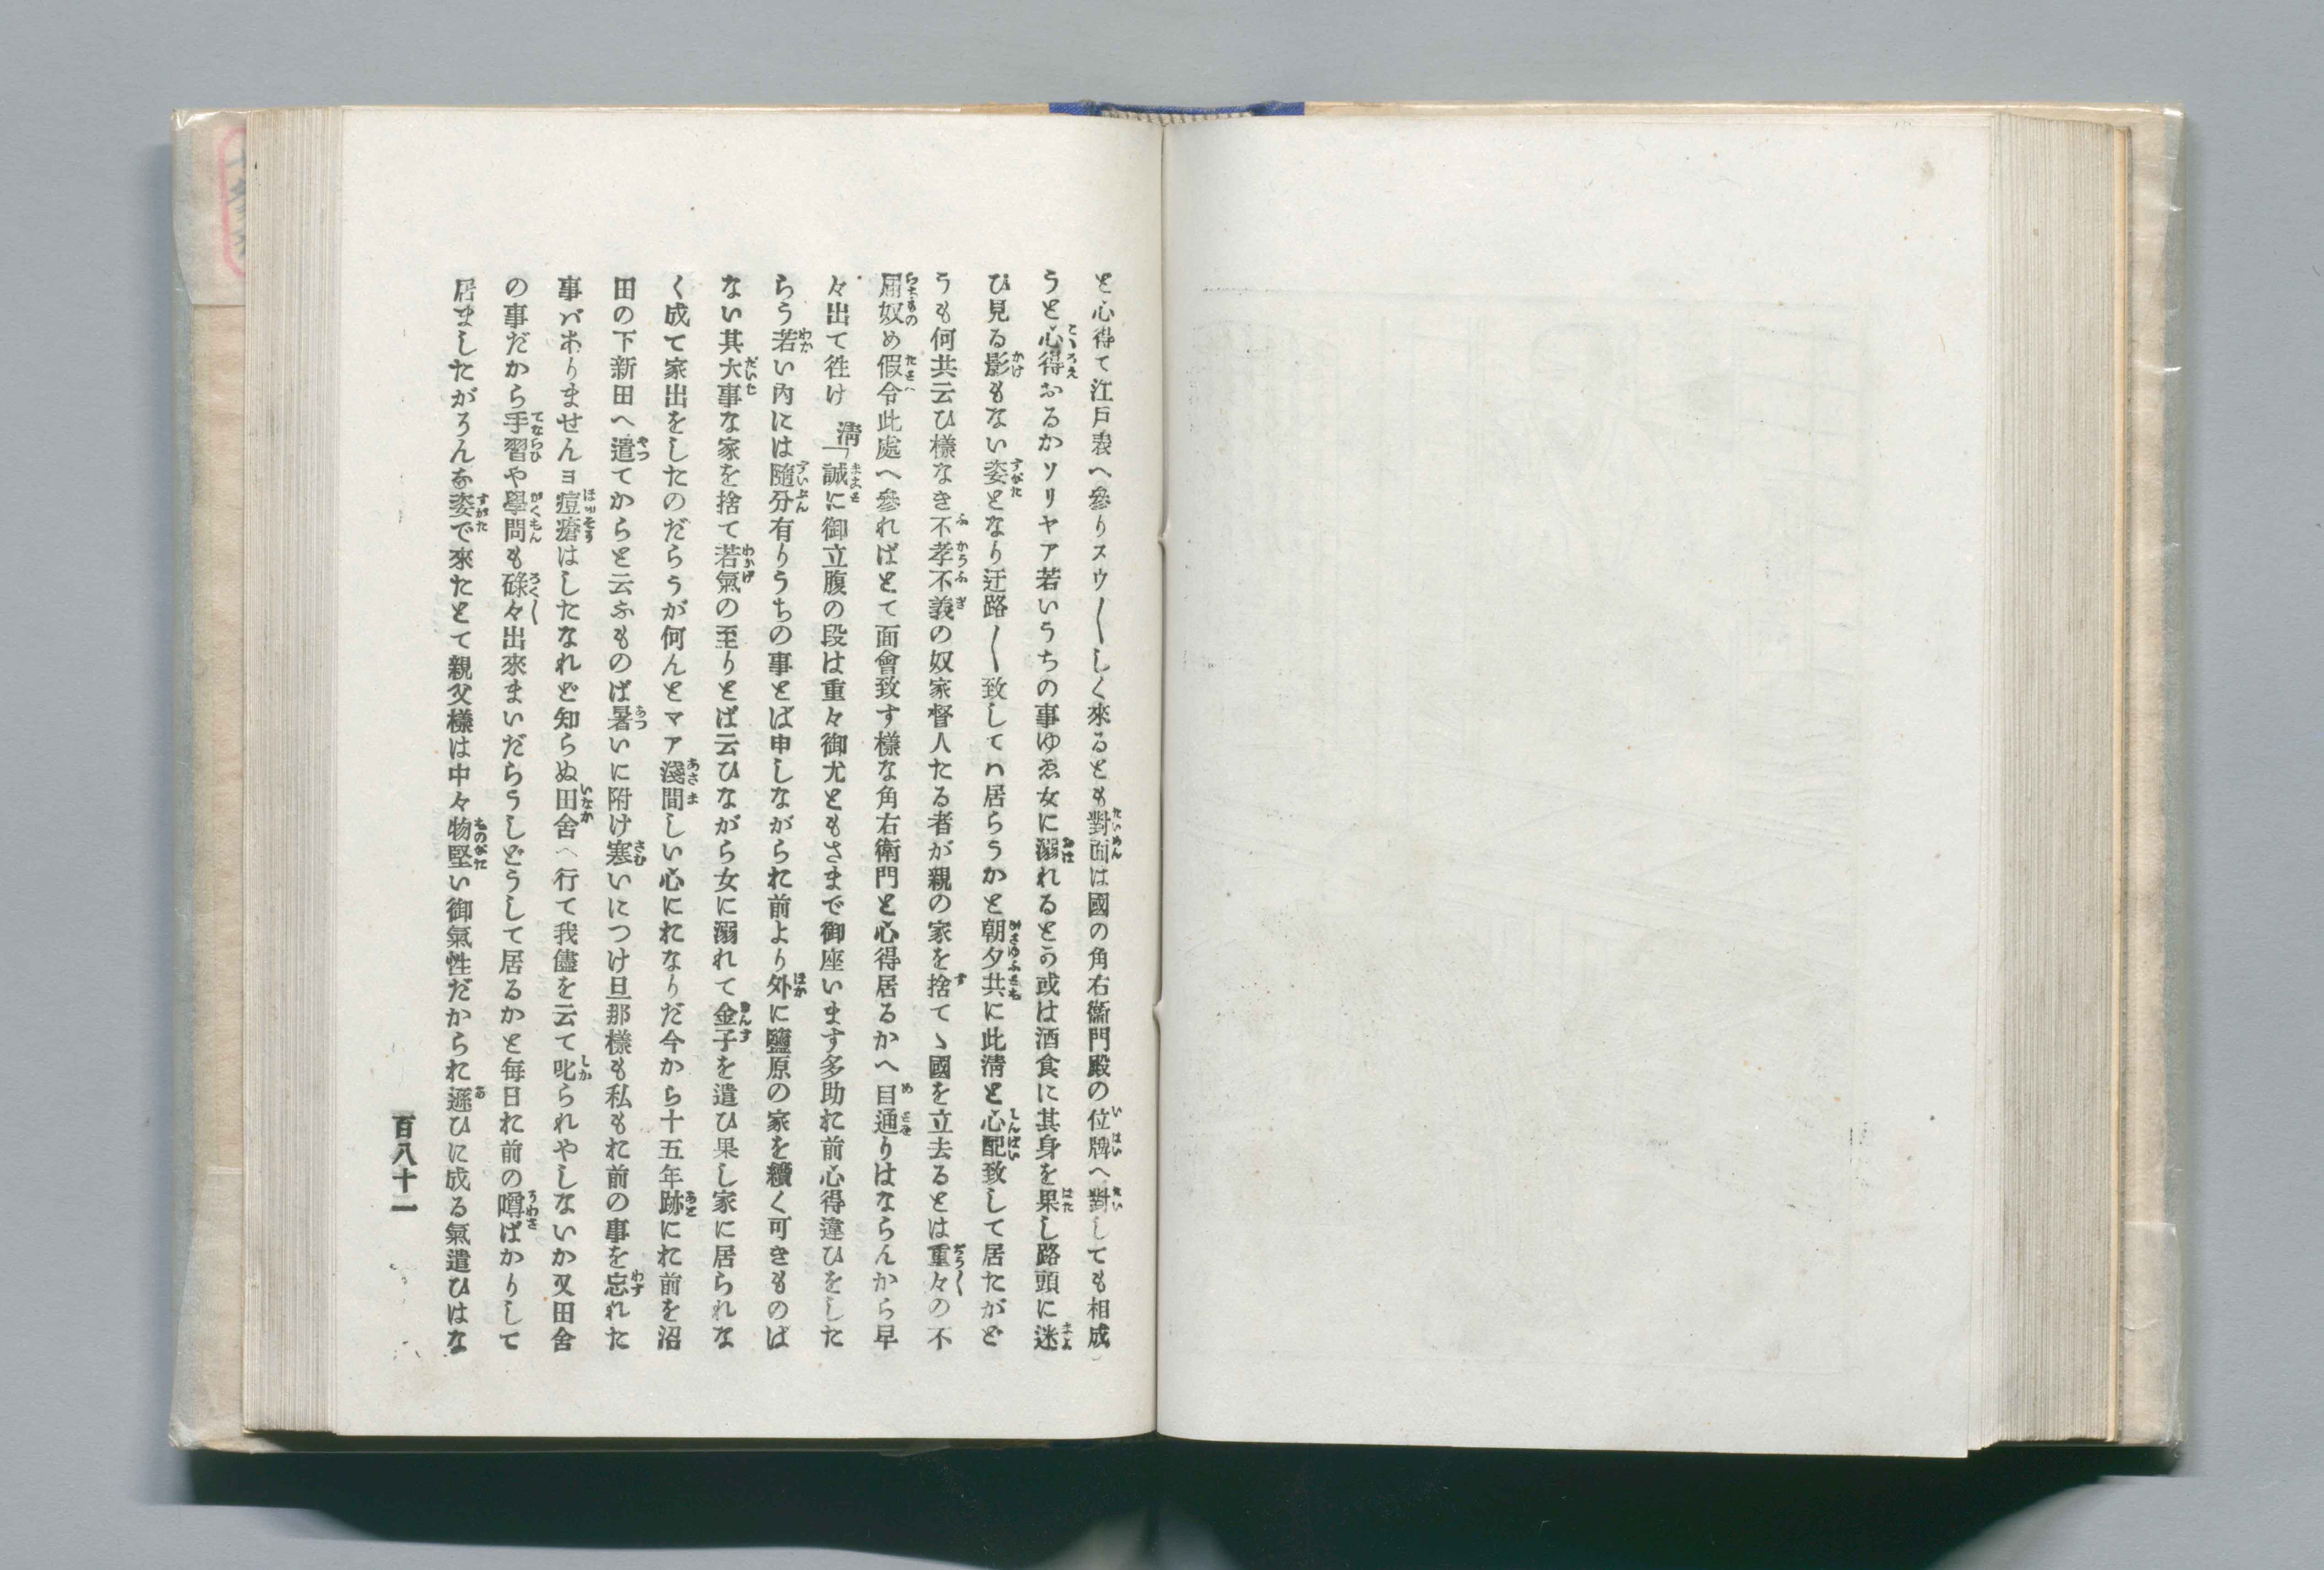 と心得て江戸表へ參りスウ〳〵しく來るとも對面は國の角右衞門殿の位牌へ對しても相成
うと心得おるかソリヤア若いうちの事ゆゑ女に溺れるとか或は酒食に其身を果し路頭に迷
ひ見る影もない姿となり迂路〳〵致してハ居らうかと朝夕共に此淸と心配致して居たがど
うも何共云ひ樣なき不孝不義の奴家督人たる者が親の家を捨てゝ國を立去るとは重々の不
屆奴め假令此處へ參ればとて面會致す樣な角右衞門と心得居るかへ目通りはならんから早
々出て徃け　淸「誠に御立腹の段は重々御尤ともさまで御座います多助れ前心得違ひをした
らう若い內には隨分有りうちの事とば申しながられ前より外に鹽原の家を續く可きものば
ない其大事な家を捨て若氣の至りとば云ひながら女に溺れて金子を遣ひ果し家に居られな
く成て家出をしたのだらうが何んとマア淺間しい心にれなりだ今から十五年跡にれ前を沼
田の下新田へ遣てからと云ふものば暑いに附け寒いにつけ旦那樣も私もれ前の事を忘れた
事バありませんヨ痘瘡はしたなれど知らぬ田舍へ行て我儘を云て叱られやしないか又田舍
の事だから手習や學問も碌々出來まいだらうしどうして居るかと每日れ前の噂ばかりして
居ましたがろんな姿で來たとて親父樣は中々物堅い御氣性だかられ遜ひに成る氣遣ひはな
百八十一